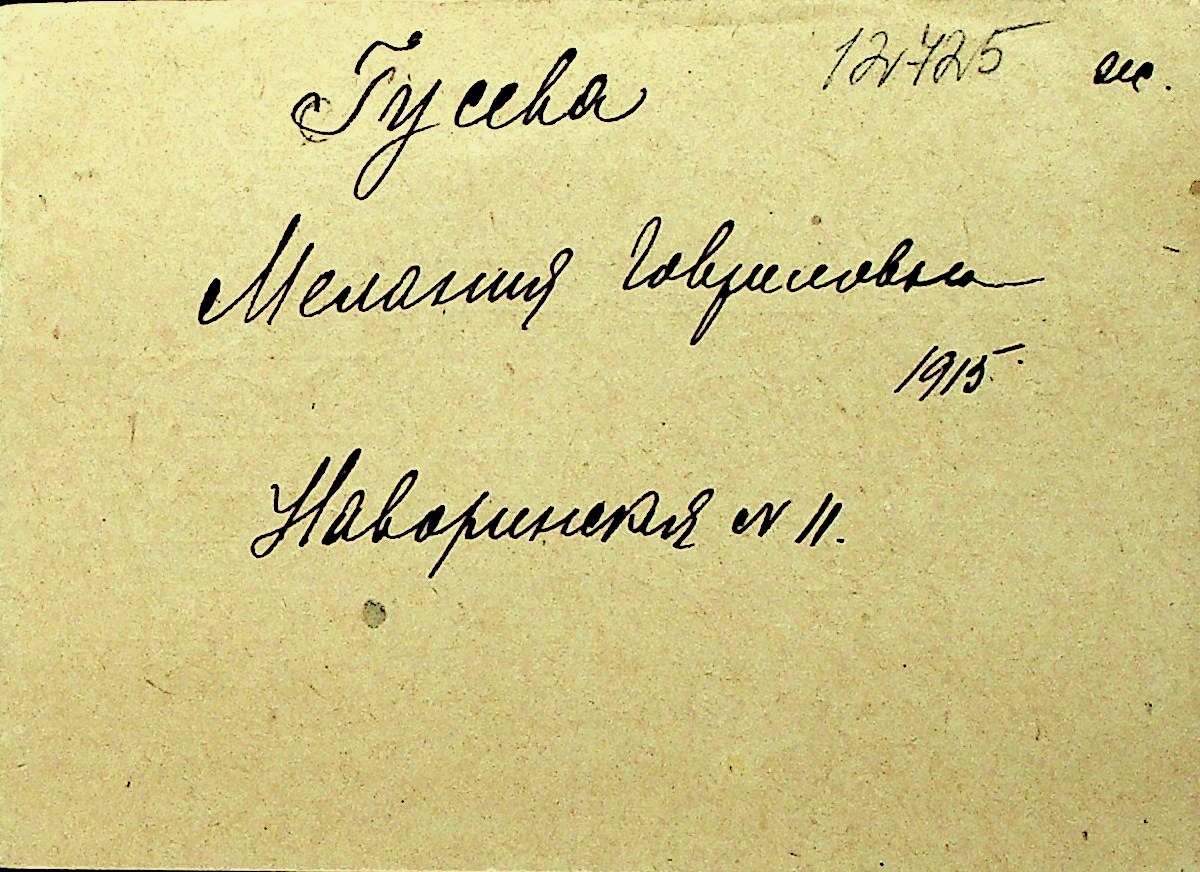 12725 ж.
Гусева
Мелания Гавриловна
1915
Наваринская № 11.